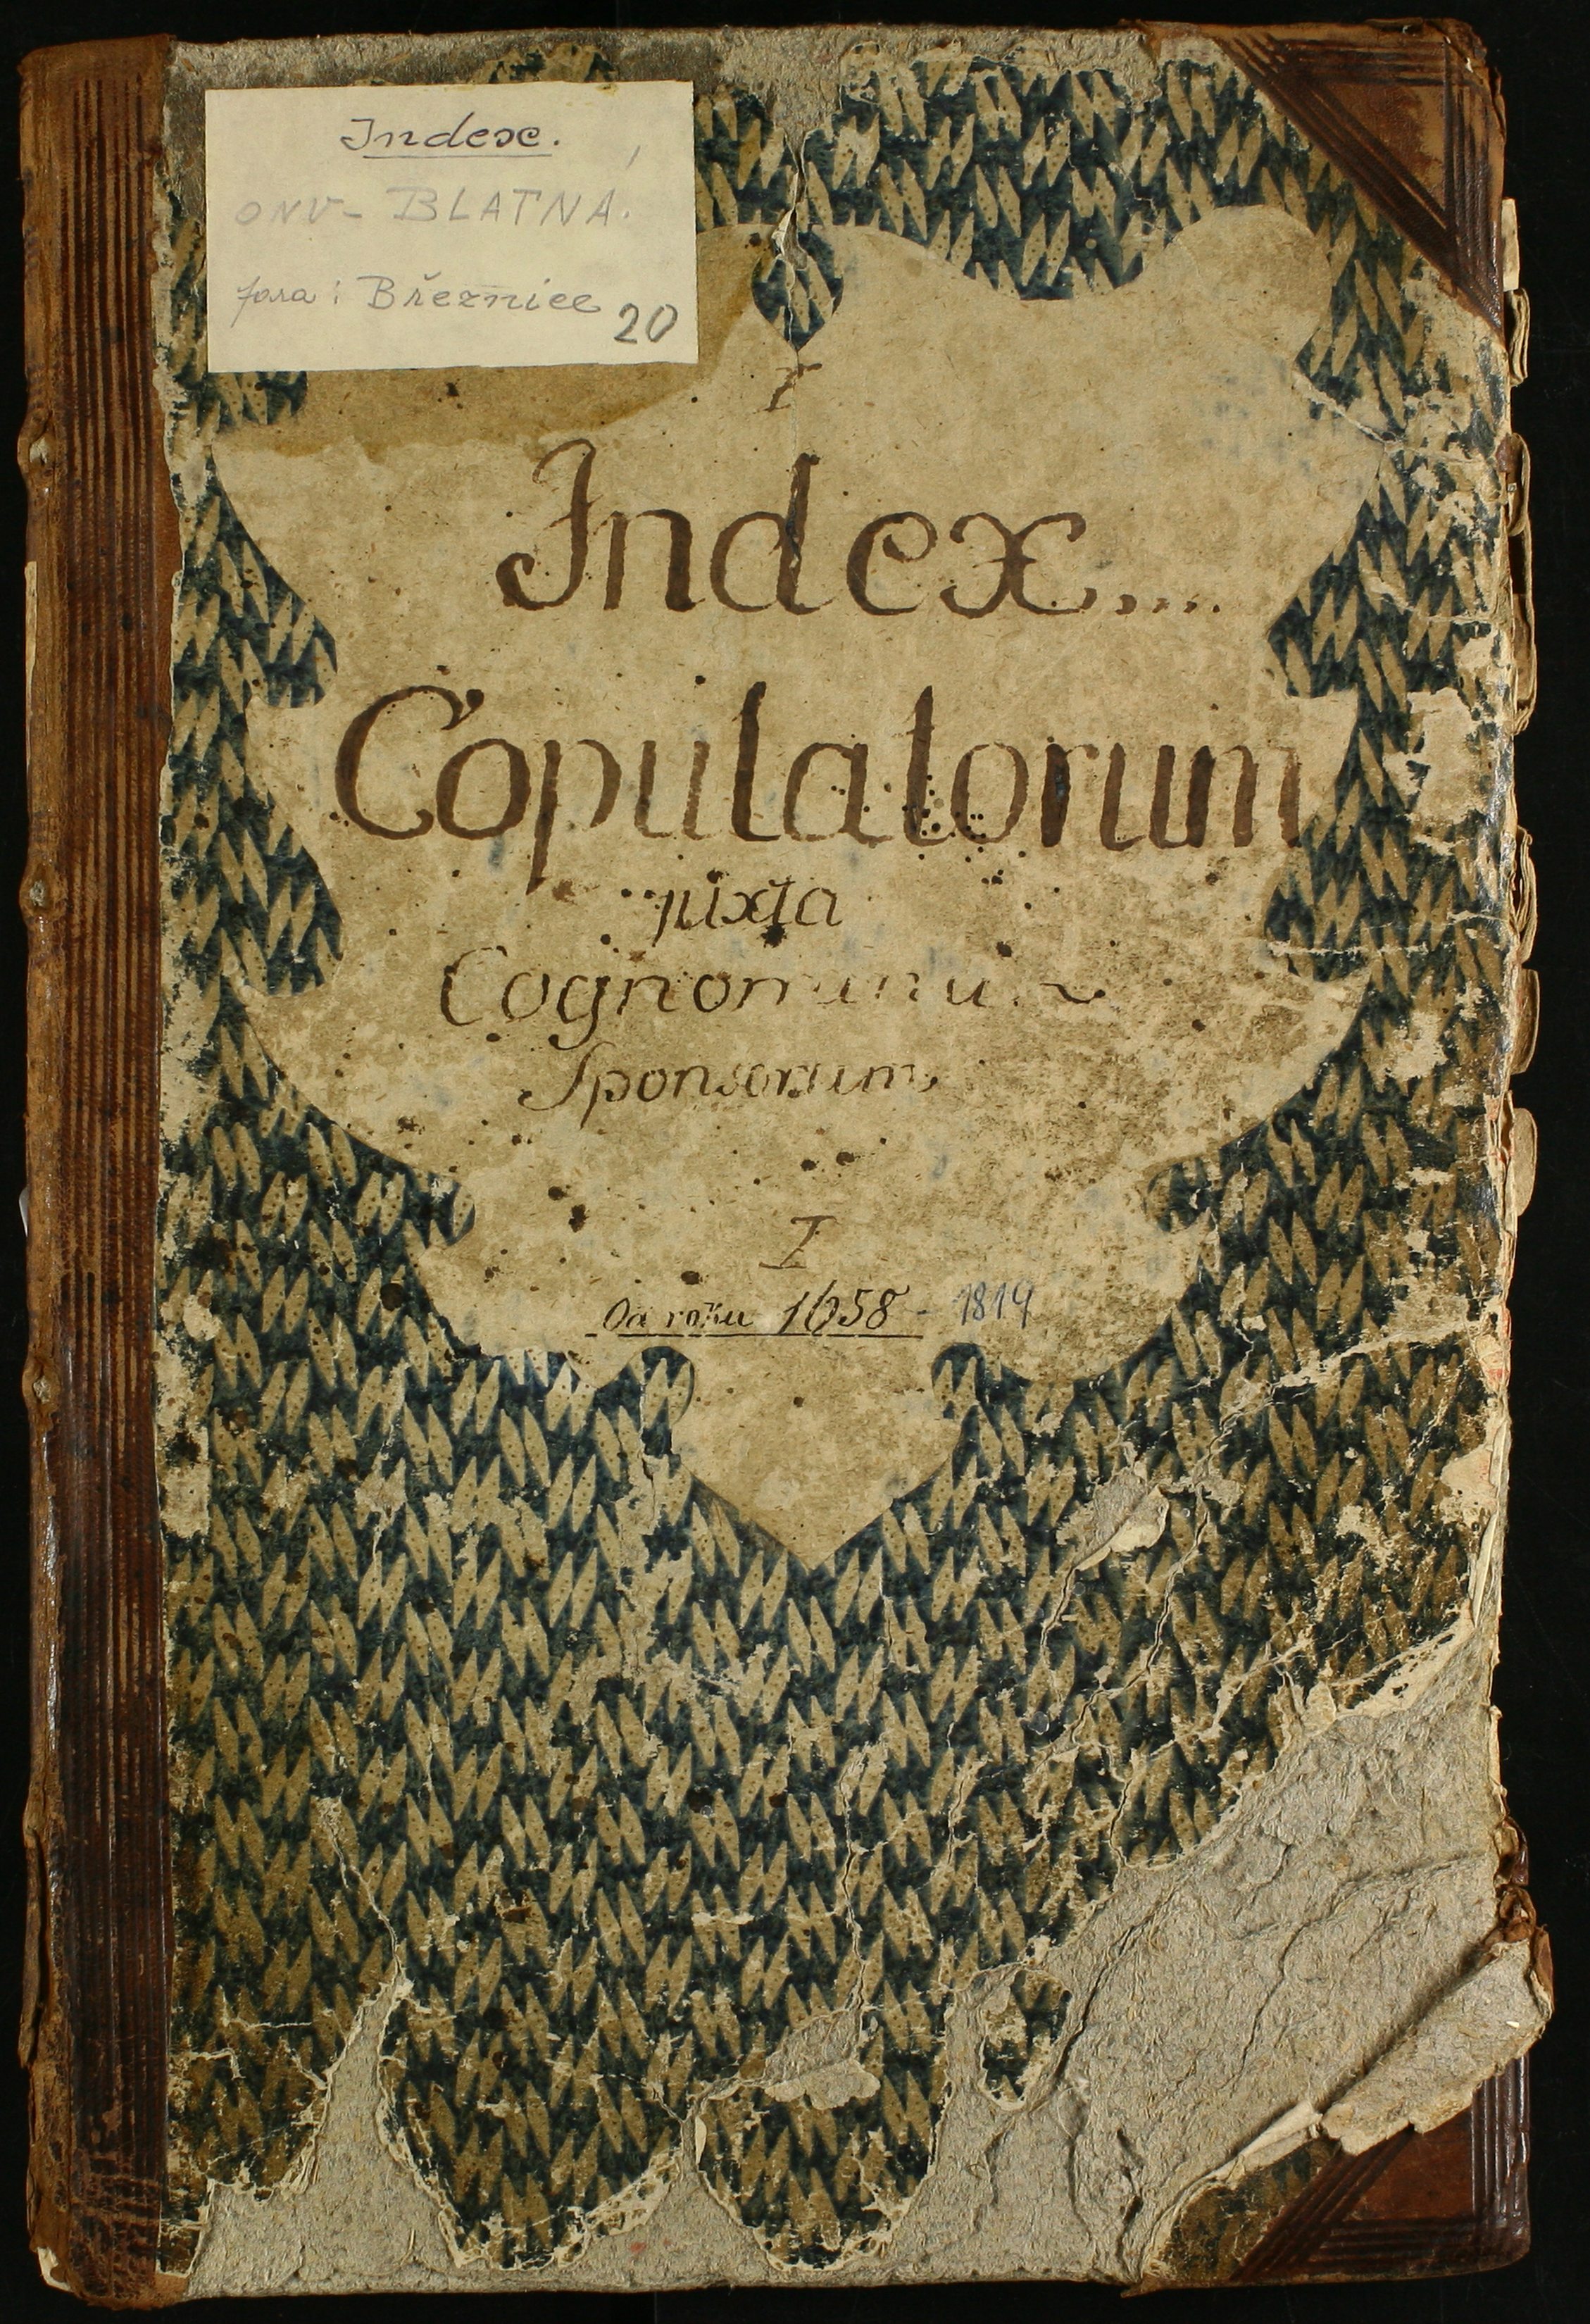 Index.
ONV - BLATNÁ.
fara: Březnice
20
I
Index....
Copulatorum
juxta
Cognomina
Sponsorum
I
Od roku 1658 - 1814